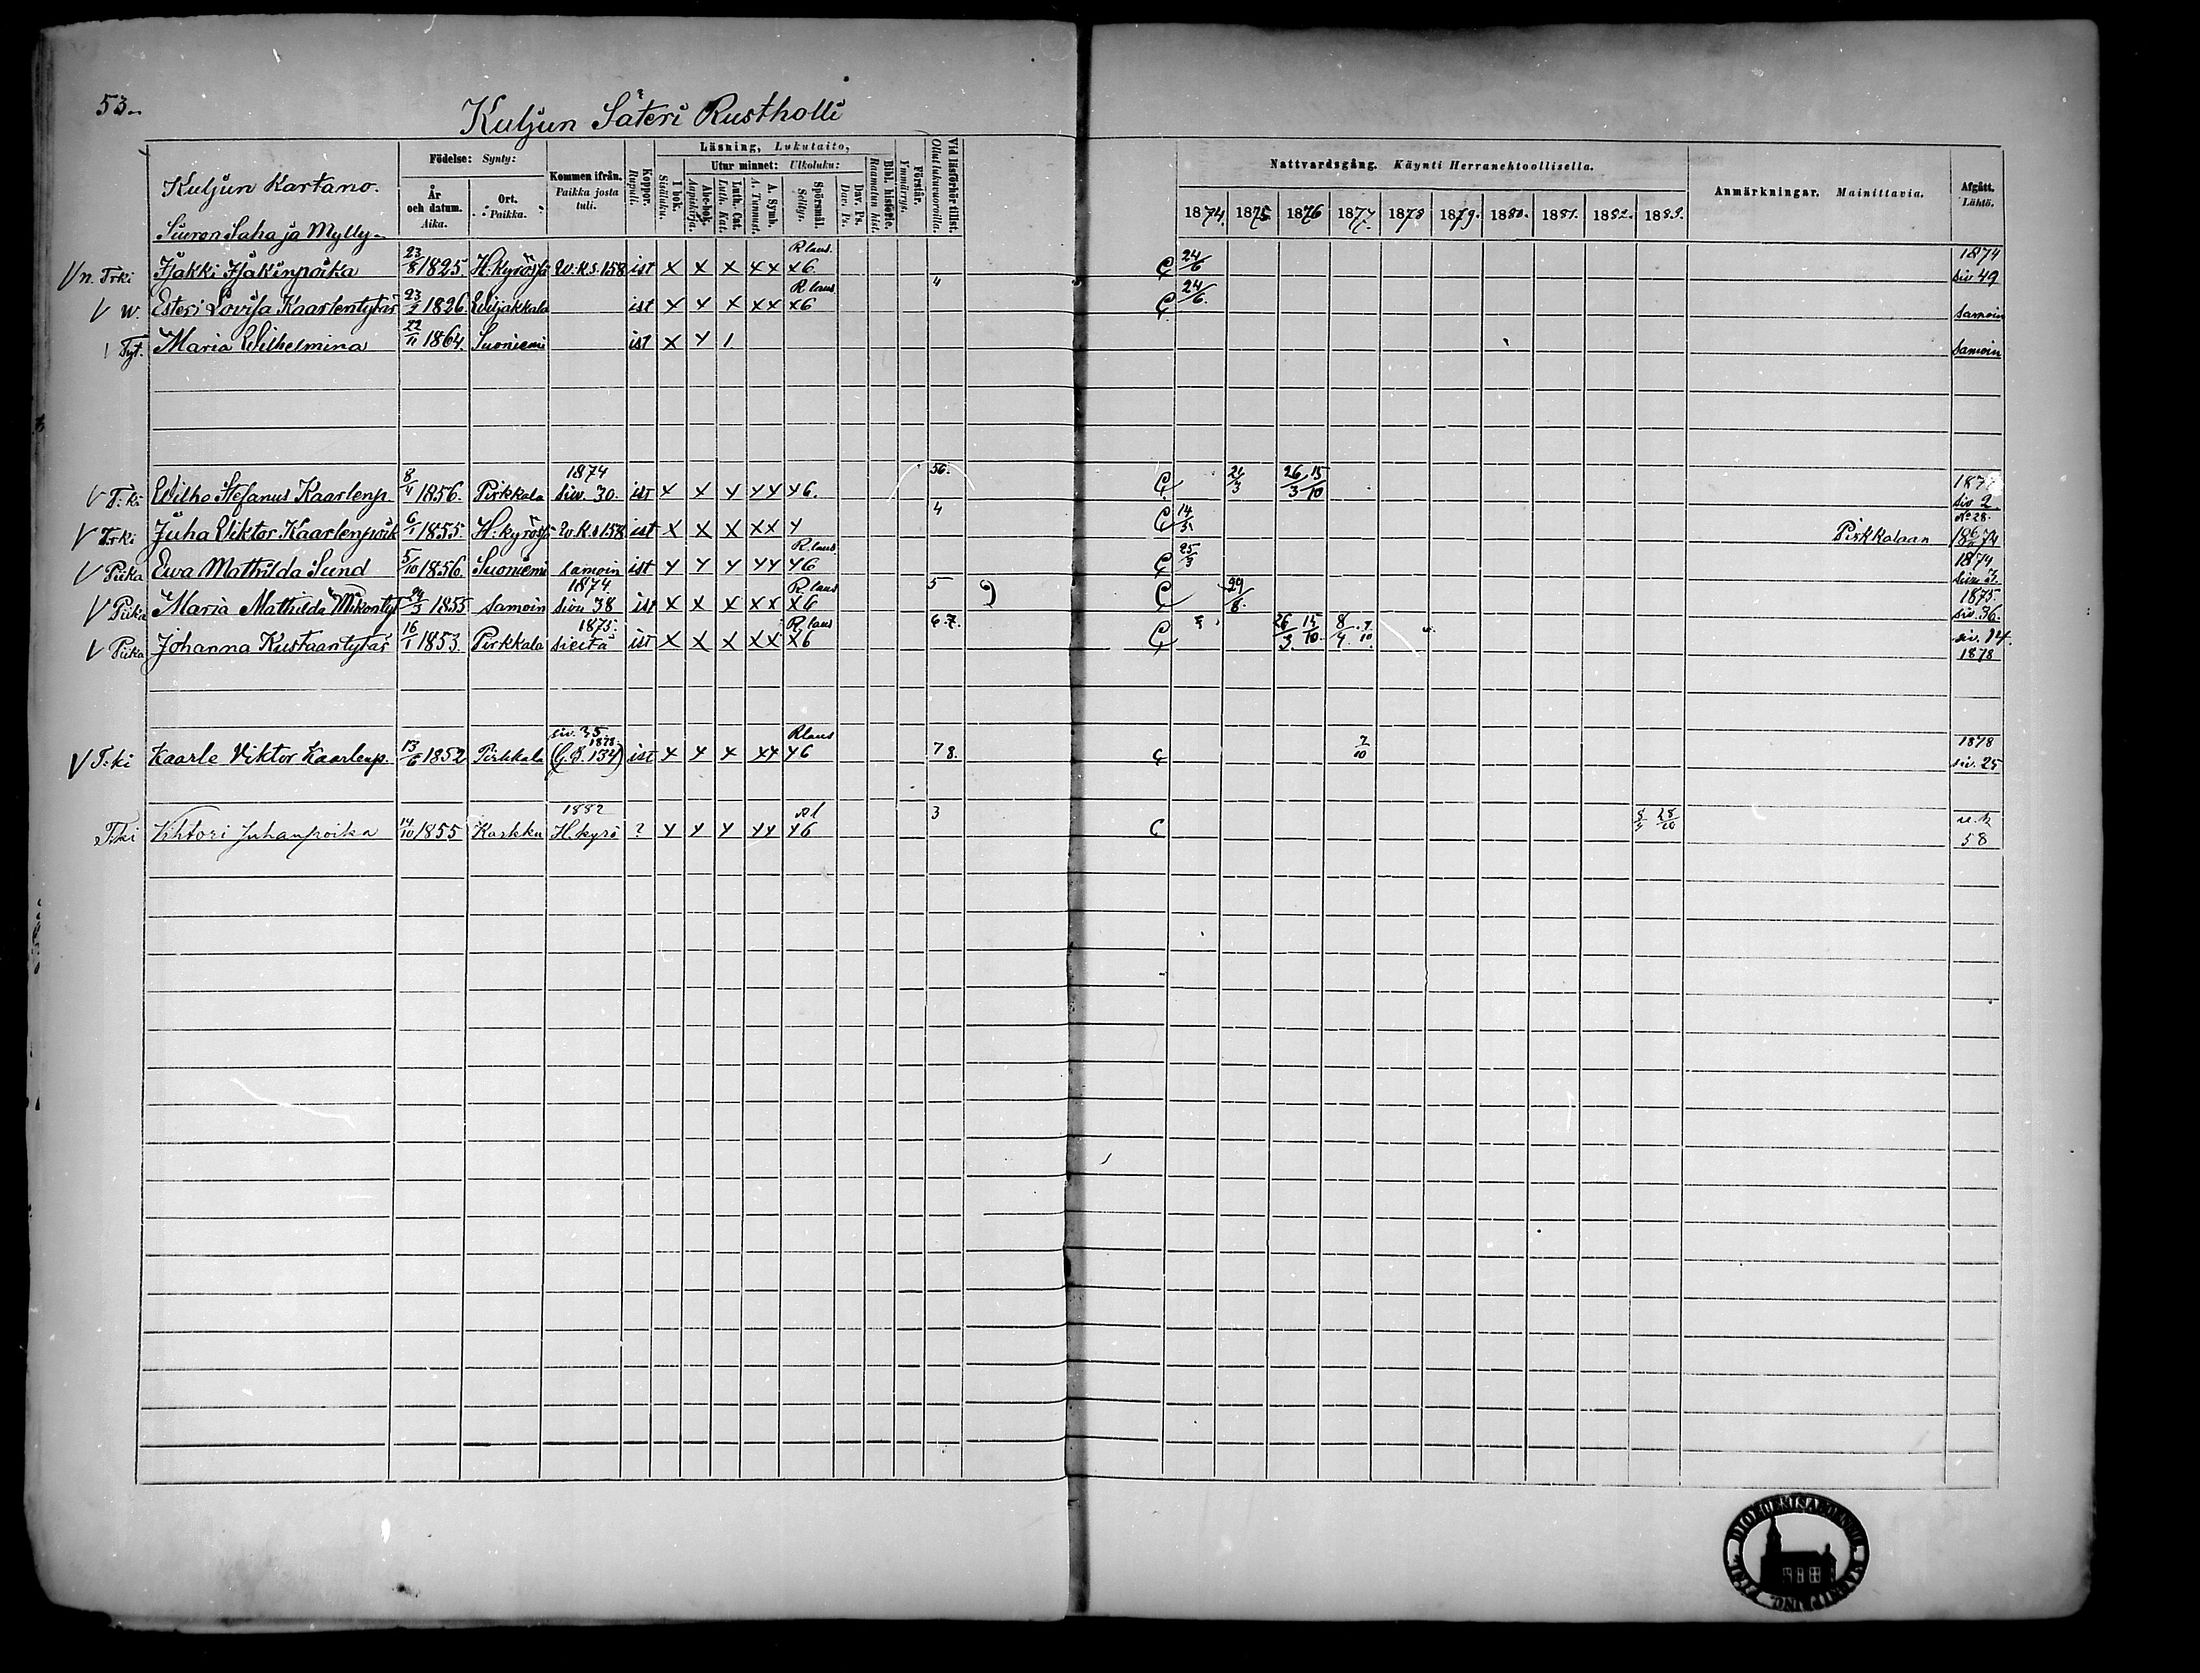 53.
Kuljun Säteri Rustholli
Läsning, Lukutaito,
Födelse: Synty:
Kommen ifrån. Paikka josta tuli.
År och datum. Aika.
Ort. Paikka.
Koppor. Rupuli.
I bok. Sisäluku.
Utur minnet: Ulkoluku:
Abc-bok. Aapiskirja.
Luth. Cat. Luth. Kat.
A. Symb. A. Tunnust.
Spörsmål. Selitys.
Dav. Ps. Dav. Ps.
Bibl. historie. Raamatun hist.
Förstår. Ymmärrys.
Vid läsförhör tillst. Ollut lukuvuorolla.
Nattvardsgång. Käynti Herranehtoollisella.
1874. 1875. 1876 1877. 1878 1879. 1880. 1881. 1882. 1883.
Anmärkningar. Mainittavia.
Afgått. Lähtö.
Kuljun Kartano.
Suuren Saha ja Mylly
Trki Jjakki Jjakinpoika 23/8 1825. H:kyrössä W.K.S. 158 ist x x x x x x6 R laus. 4 24/6 1874 siv 49
W. Esteri Lovisa Kaarlentytär 1826 Wiljakkala ist x x x x x x6 R laus 24/6. Samoin
Tyt. Maria Wilhelmina 22/11 1864. Suoniemi ist x x 1. Samoin
T:ki Wilho Stefanus Kaarlenp. 8/4 1856. Pirkkala 1874 siv. 30. ist x x x x x x6. 56. 26/3 15/10 siv 2
Trki Juha Viktor Kaarlenpoik 6/1 1855. H:kyrössä W.K.S 158 ist x x x x x x 4 14/5 Pirkkalaan No 28.
Piika Ewa Mathilda Sund 5/10 1856. Suoniemi samoin ist x x x x x x6 R. laus 25/3 1874
Piika Maria Mathilda Mikontyt 1855 samoin 1874. sivu 38 ist x x x x x x6 R. laus 5 29/8. 1875 siv. 36.
Piika Johanna Kustaantytär 16/1 1853. Pirkkala 1875. sieltä ist x x x x x x6 R. laus 6.7. 26/3. 15/10. 8/4. 7/10. siv. 14. 1878
T:ki Kaarle Viktor Kaarlenp. 13/6 1852 Pirkkala siv. 35 1878. (C.B. 134) ist x x x x x x6 R laus 7 8. 7/10 1878 siv. 25
Trki Vihtori Juhanpoika 14/10 1855 Karkku 1882 H.kyrö ? x x x x x x6 3 28/10 58